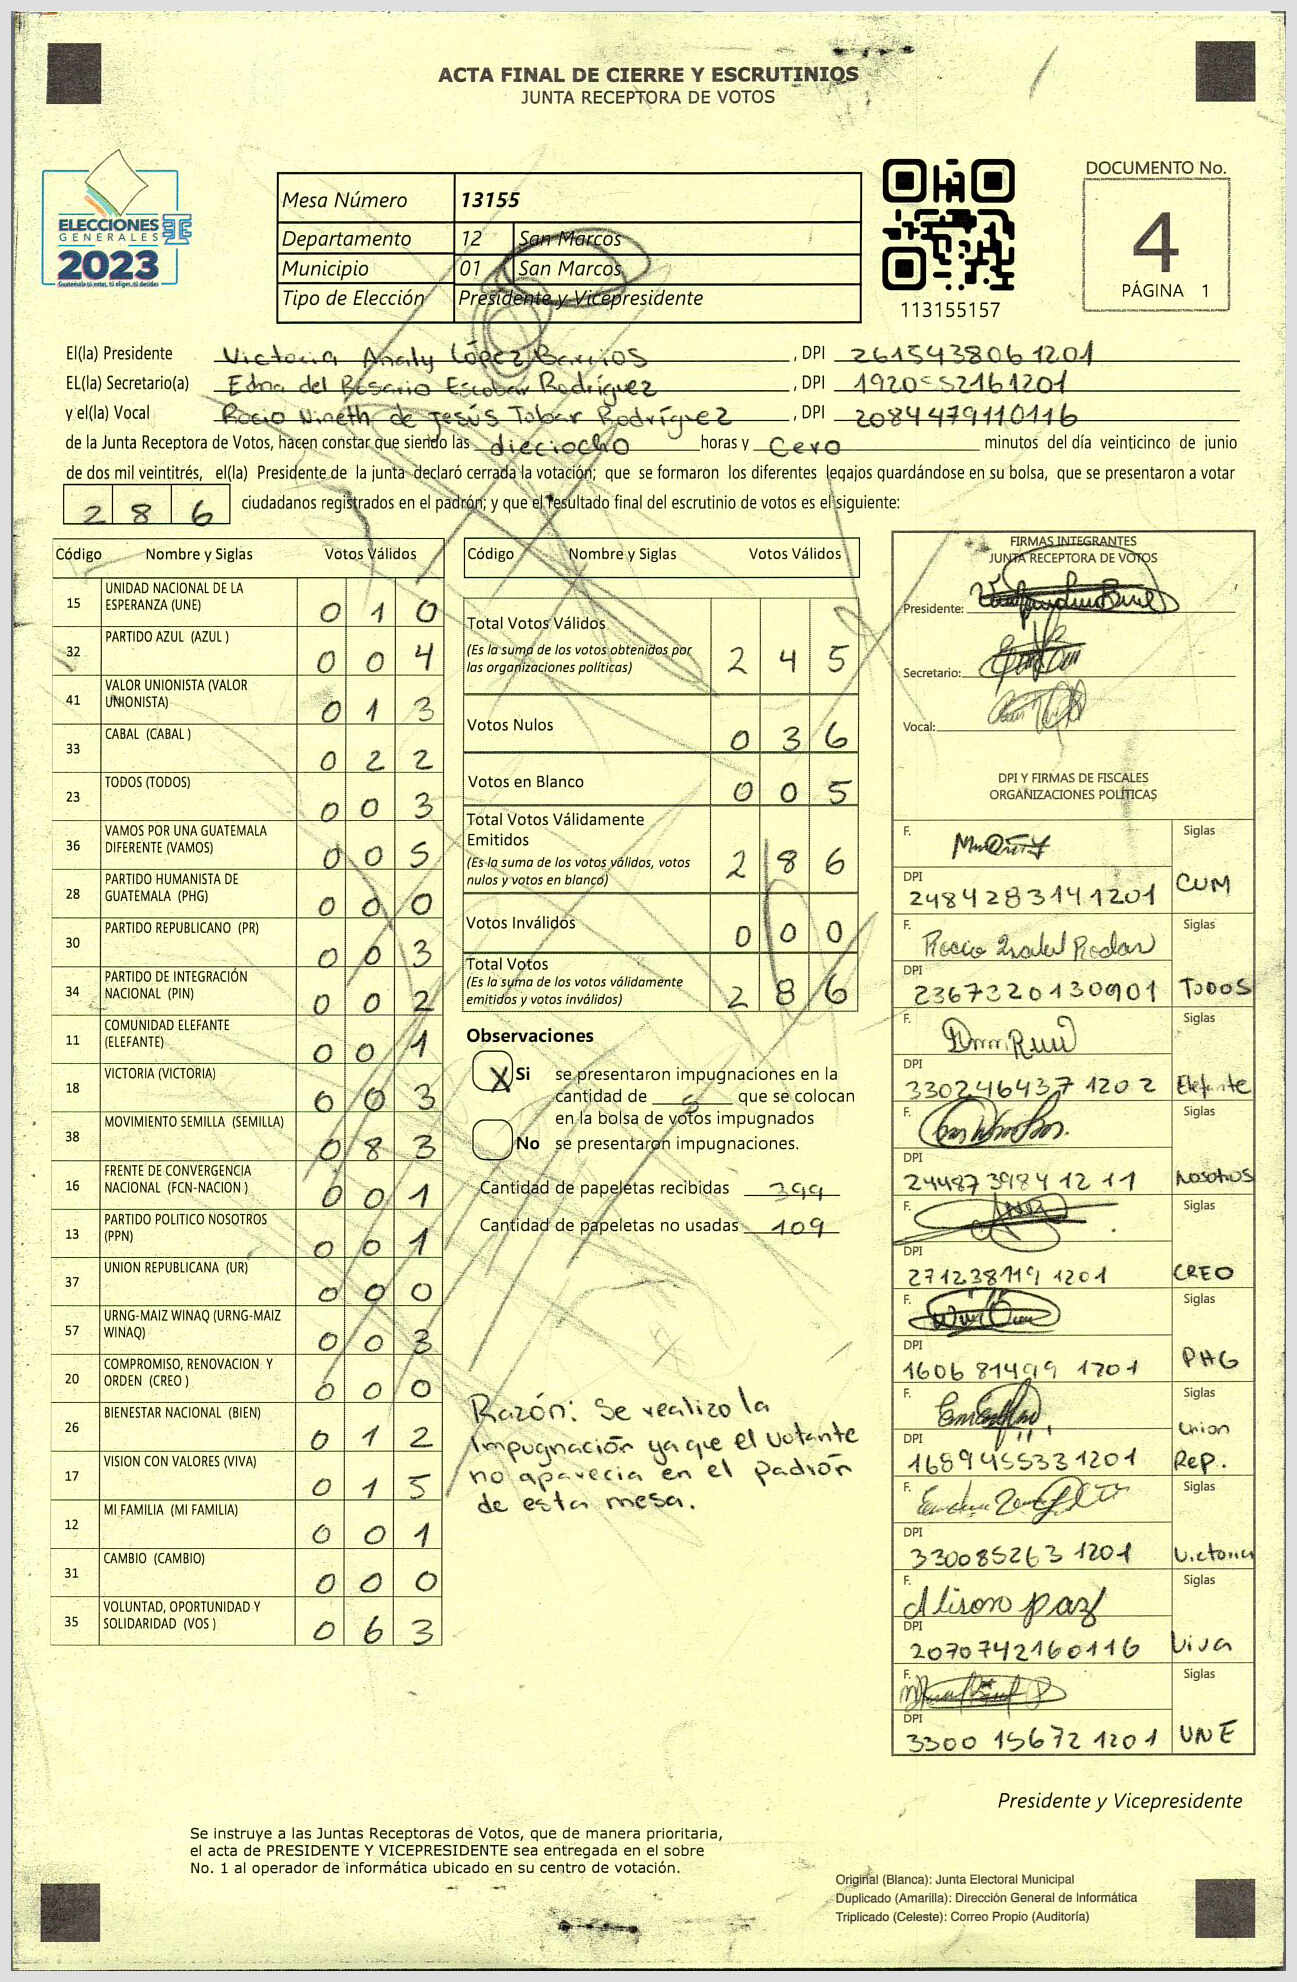 ACTA FINAL DE CIERRE Y ESCRUTINIOS
JUNTA RECEPTORA DE VOTOS
ELECCIONES
GENERALES
2023
Guatemala tú votas, tú eliges, tú decides
Mesa Número 13155
Departamento 12 San Marcos
Municipio 01 San Marcos
Tipo de Elección Presidente y Vicepresidente
113155157
DOCUMENTO No.
4
PÁGINA 1
El(la) Presidente Victoria Analy López Barrios, DPI 2615438061201
EL(la) Secretario(a) Edna del Rosario Escobar Rodríguez, DPI
y el(la) Vocal Rocio Nineth de Jesús Tobar Rodríguez, DPI 2084479110116
de la Junta Receptora de Votos, hacen constar que siendo las dieciocho horas y Cero minutos del día veinticinco de junio
de dos mil veintitrés, el(la) Presidente de la junta declaró cerrada la votación; que se formaron los diferentes legajos quardándose en su bolsa, que se presentaron a votar
286 ciudadanos registrados en el padrón; y que el resultado final del escrutinio de votos es el siguiente:
Código Nombre y Siglas Votos Válidos
15 UNIDAD NACIONAL DE LA ESPERANZA (UNE) 0 1 0
32 PARTIDO AZUL (AZUL ) 0 0 4
41 VALOR UNIONISTA (VALOR UNIONISTA) 0 1 3
33 CABAL (CABAL ) 0 2 2
23 TODOS (TODOS) 0 0 3
36 VAMOS POR UNA GUATEMALA DIFERENTE (VAMOS) 0 0 5
28 PARTIDO HUMANISTA DE GUATEMALA (PHG) 0 0 0
30 PARTIDO REPUBLICANO (PR) 0 0 3
34 PARTIDO DE INTEGRACIÓN NACIONAL (PIN) 0 0 2
11 COMUNIDAD ELEFANTE (ELEFANTE) 0 0 1
18 VICTORIA (VICTORIA) 0 0 3
38 MOVIMIENTO SEMILLA (SEMILLA) 0 8 3
16 FRENTE DE CONVERGENCIA NACIONAL (FCN-NACION ) 0 0 1
13 PARTIDO POLITICO NOSOTROS (PPN) 0 0 1
37 UNION REPUBLICANA (UR) 0 0 0
57 URNG-MAIZ WINAQ (URNG-MAIZ WINAQ) 0 0 3
20 COMPROMISO, RENOVACION Y ORDEN (CREO ) 0 0 0
26 BIENESTAR NACIONAL (BIEN) 0 1 2
17 VISION CON VALORES (VIVA) 0 1 5
12 MI FAMILIA (MI FAMILIA) 0 0 1
31 CAMBIO (CAMBIO) 0 0 0
35 VOLUNTAD, OPORTUNIDAD Y SOLIDARIDAD (VOS ) 0 6 3
Código Nombre y Siglas Votos Válidos
Total Votos Válidos 2 4 5
(Es la suma de los votos obtenidos por
las organizaciones políticas)
Votos Nulos 0 3 6
Votos en Blanco 0 0 5
Total Votos Válidamente
Emitidos 2 8 6
(Es la suma de los votos válidos, votos
nulos y votos en blanco)
Votos Inválidos 0 0 0
Total Votos 2 8 6
(Es la suma de los votos válidamente
emitidos y votos inválidos)
Observaciones
X Si se presentaron impugnaciones en la
cantidad de que se colocan
en la bolsa de votos impugnados
No se presentaron impugnaciones.
Cantidad de papeletas recibidas 399
Cantidad de papeletas no usadas 109
Razón: Se realizo la
Impugnación ya que el votante
no aparecia en el padrón
de esta mesa.
FIRMAS INTEGRANTES
JUNTA RECEPTORA DE VOTOS
Presidente:
Secretario:
Vocal:
DPI Y FIRMAS DE FISCALES
ORGANIZACIONES POLÍTICAS
F. Siglas
DPI 2484283141201 CUM
F. Rocio Isabel Rodas Siglas
DPI 2367320130901 TODOS
F. Siglas
DPI 3302464371202 Elefante
F. Siglas
DPI 2448739841211 Nosotros
F. Siglas
DPI 1201 CREO
F. Siglas
DPI 1606814991201 PHG
F. Siglas
DPI 1689455331201 Union Rep.
F. Siglas
DPI 3300852631201 Victoria
F. Alison paz Siglas
DPI 2070742160116 Viva
F. Siglas
DPI 3300156721201 UNE
Presidente y Vicepresidente
Se instruye a las Juntas Receptoras de Votos, que de manera prioritaria,
el acta de PRESIDENTE Y VICEPRESIDENTE sea entregada en el sobre
No. 1 al operador de informática ubicado en su centro de votación.
Original (Blanca): Junta Electoral Municipal
Duplicado (Amarilla): Dirección General de Informática
Triplicado (Celeste): Correo Propio (Auditoría)